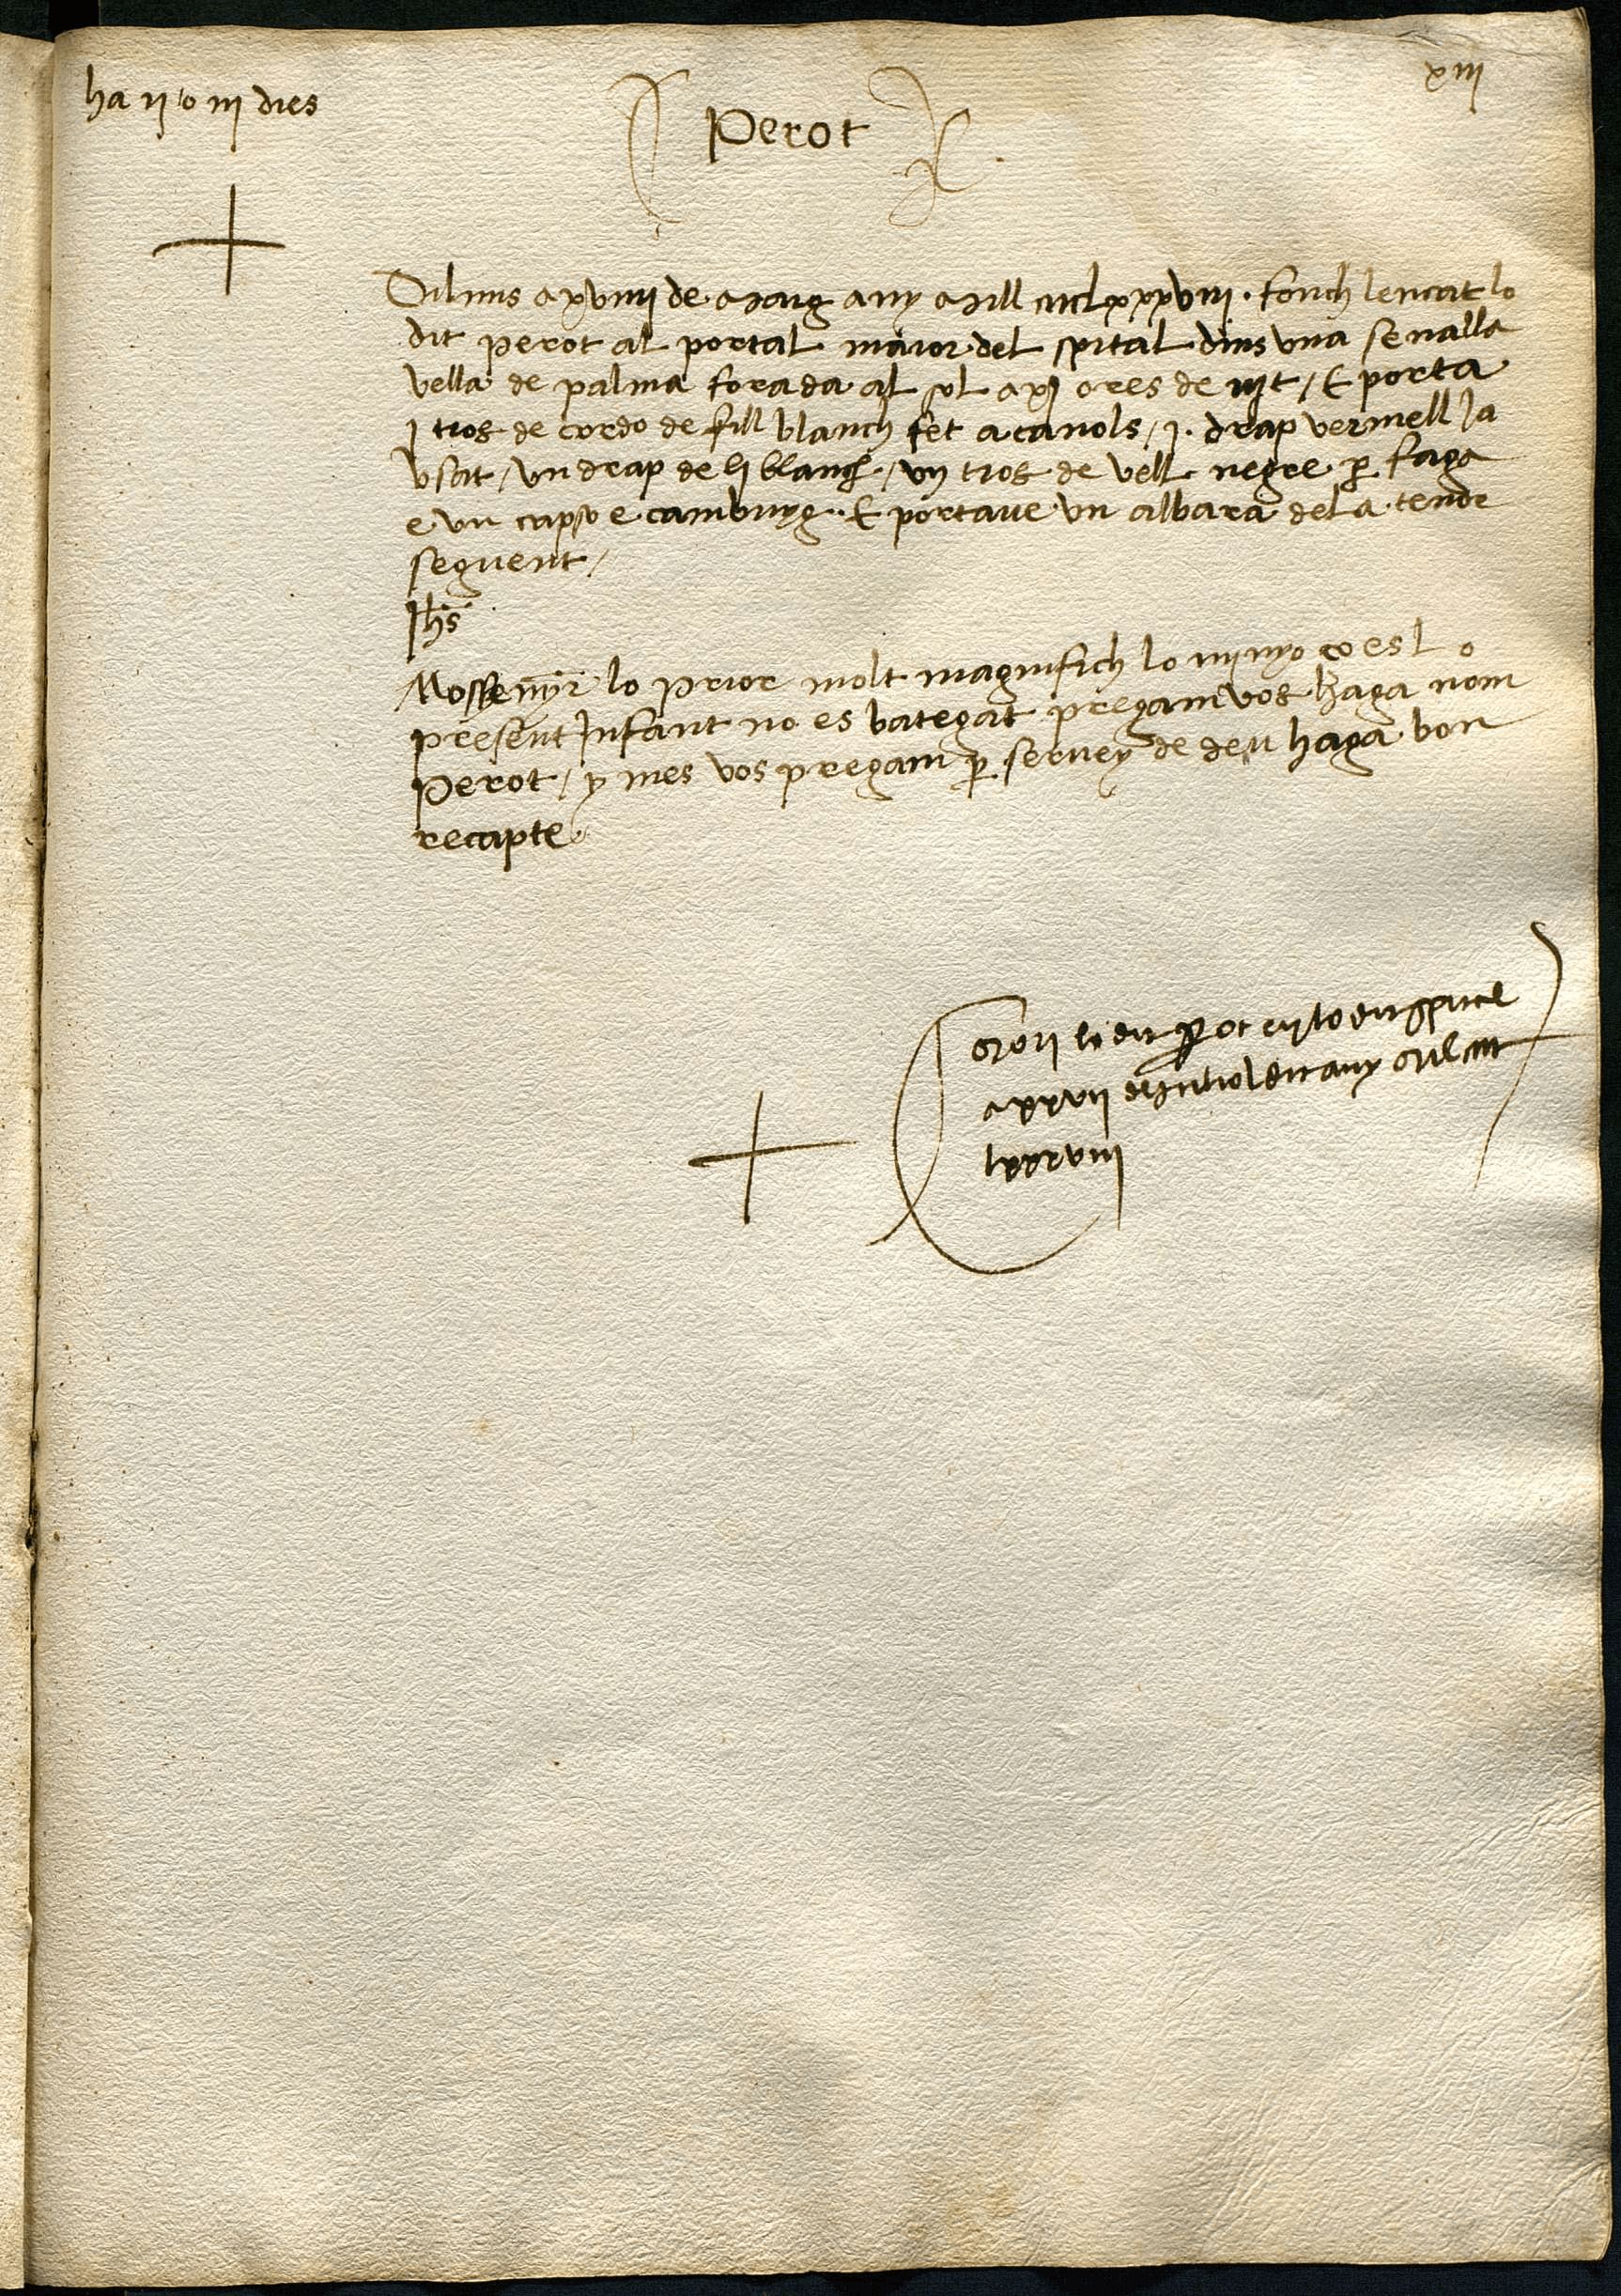 ha ii o iii dies
xiii
Perot
Diluns a xviiii de Maig any Mill cccclxxxviii . fonch lencat lo
dit perot al portal maior del spital dins vna senalla
vella de palma foradada al sol a xj ores de nit / E porta
j tros de cordo de fill blanch fet a canols / j . drap vermell ja
vsat / vn drap de li blanch / vn tros de vell negre per faxa
e vn capso e cambuyg . E portaue vn albara dela tenor
seguent /
Jhs
Mossenyer lo prior molt magnifich lo minyo ço es lo
present Infant no es bategat pregam vos haga nom
Perot / y mes vos pregam per seruey de deu haga bon
recapte
Mori lo dit perot en lo dit spital
a xxvii de Juliol dit any Mil cccc
lxxxviii